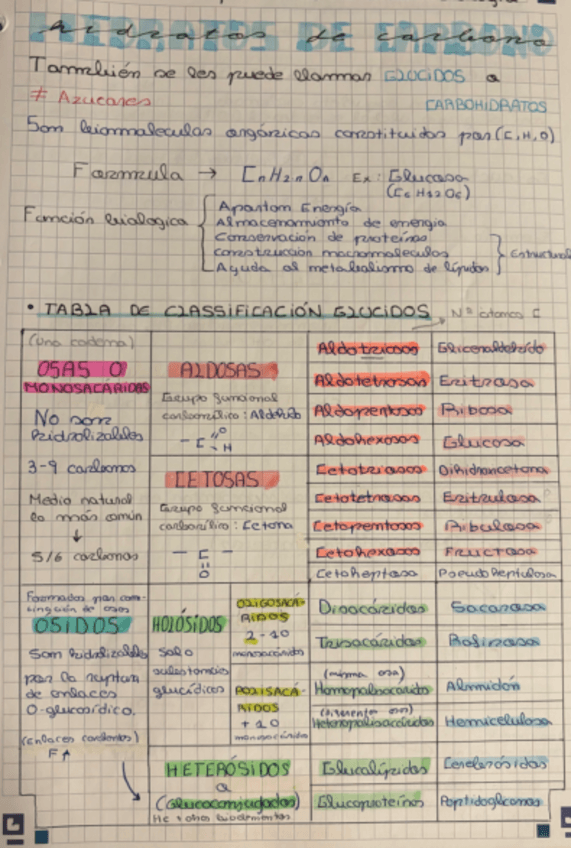 Hidratos de carbono
Tammbién se les puede llammar GLUCIDOS o
≠ Azucares
CARBOHIDRATOS
Som biommoleculas orgánicas constituidas por (C, H, O)
Formmula → CnH2nOn Ex: Glucosa
(C6H12O6)
Función biologica
Aportam Energía
Almacenamiento de energia
Conservación de proteínas
construcción macromoleculas
Ayuda al metabolismo de lípidos
Estructural
• TABLA DE CLASSIFICACIÓN GLUCIDOS
Nº atomos C
(una cadena)
OSAS O
MONOSACÁRIDOS
No som
hidrolizables
3-9 carbomos
Medio natural
lo más común
↓
5/6 carbomos
ALDOSAS
Grupo funcional
carbonílico: Aldehído
- C = O
H
CETOSAS
Grupo funcional
carbonílico: Cetona
- C -
O
Aldotriosas Gliceraldehído
Aldotetrosas Eritrosa
Aldopentosas Ribosa
Aldohexosas Glucosa
Cetotriosas Dihidroxicetona
Cetotetrosas Eritrulosa
Cetopemtosas Ribulosa
Cetohexosas Fructosa
Cetoheptosa Pseudoheptulosa
Formados por com-
binación de osas
OSIDOS
Som hidrolizables
por la ruptura
de enlaces
O-glucosídico.
(enlaces covalentes)
HOLÓSIDOS
Solo
substancias
glucídicas
OLIGOSACÁ-
RIDOS
2-10
monosacáridos
POLISACÁ-
RIDOS
+ 10
monosacáridos
Disacáridos Sacarosa
Trisacáridos Rafinosa
(misma osa)
Homopolisacarido Almidón
(diferentes osas)
Heteropolisacáridos Hemicelulosa
HETERÓSIDOS
o
(Glucoconjugados)
HC + otros bioelementos
Glucolípidos Cerebrósidos
Glucoproteínas Peptidoglicanos